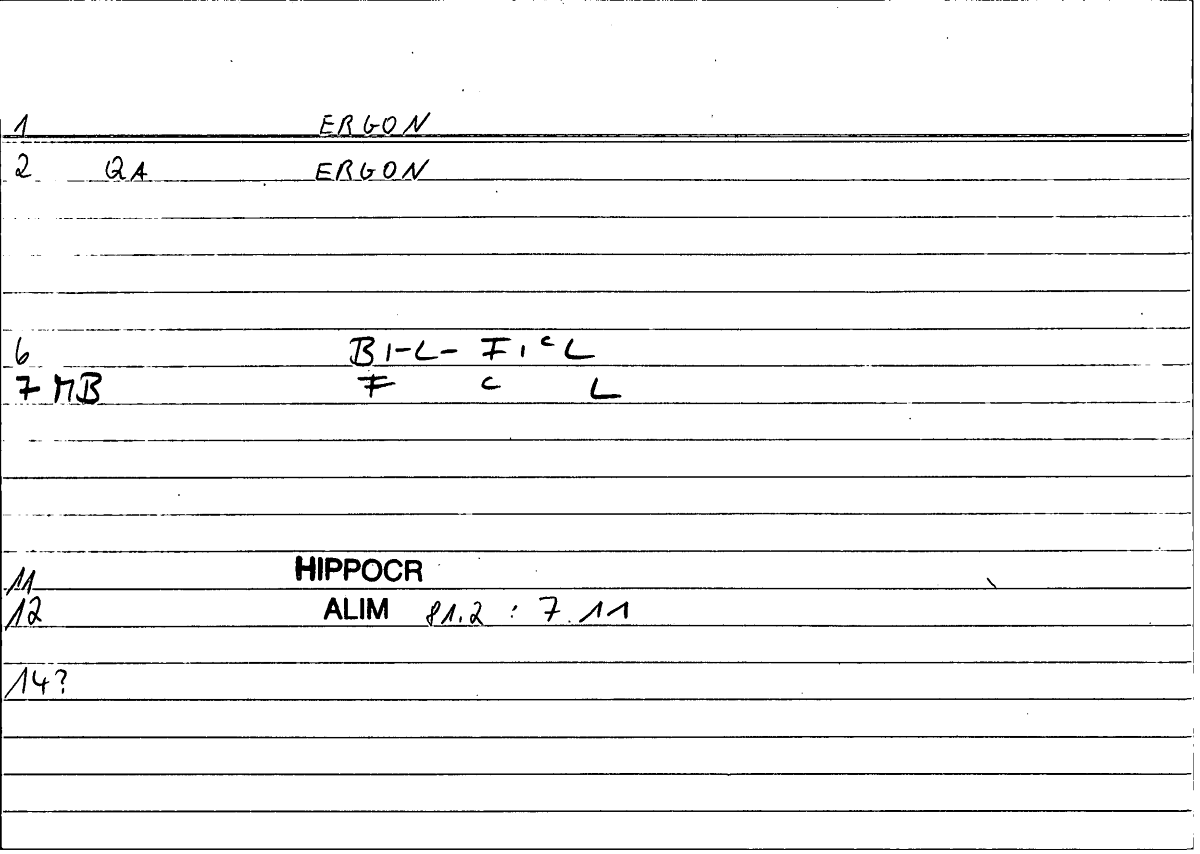 1 ERGON
2 QA ERGON
6 BI-L- FI c L
7 MB F c L
11 HIPPOCR
12 ALIM 81.2 : 7.11
14?